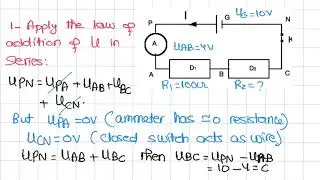 1- Apply the law of
addition of U in
Series:
UPN = UPA + UAB + UBC
+ UCN.
But UPA = 0V (ammeter has ≈ 0 resistance)
UCN = 0V (closed switch acts as wire)
UPN = UAB + UBC Then UBC = UPN - UAB
= 10 - 4 =
P I G Ug = 10V N
A UAB = 4V K
A D1 B D2 C
R1 = 100Ω R2 = ?